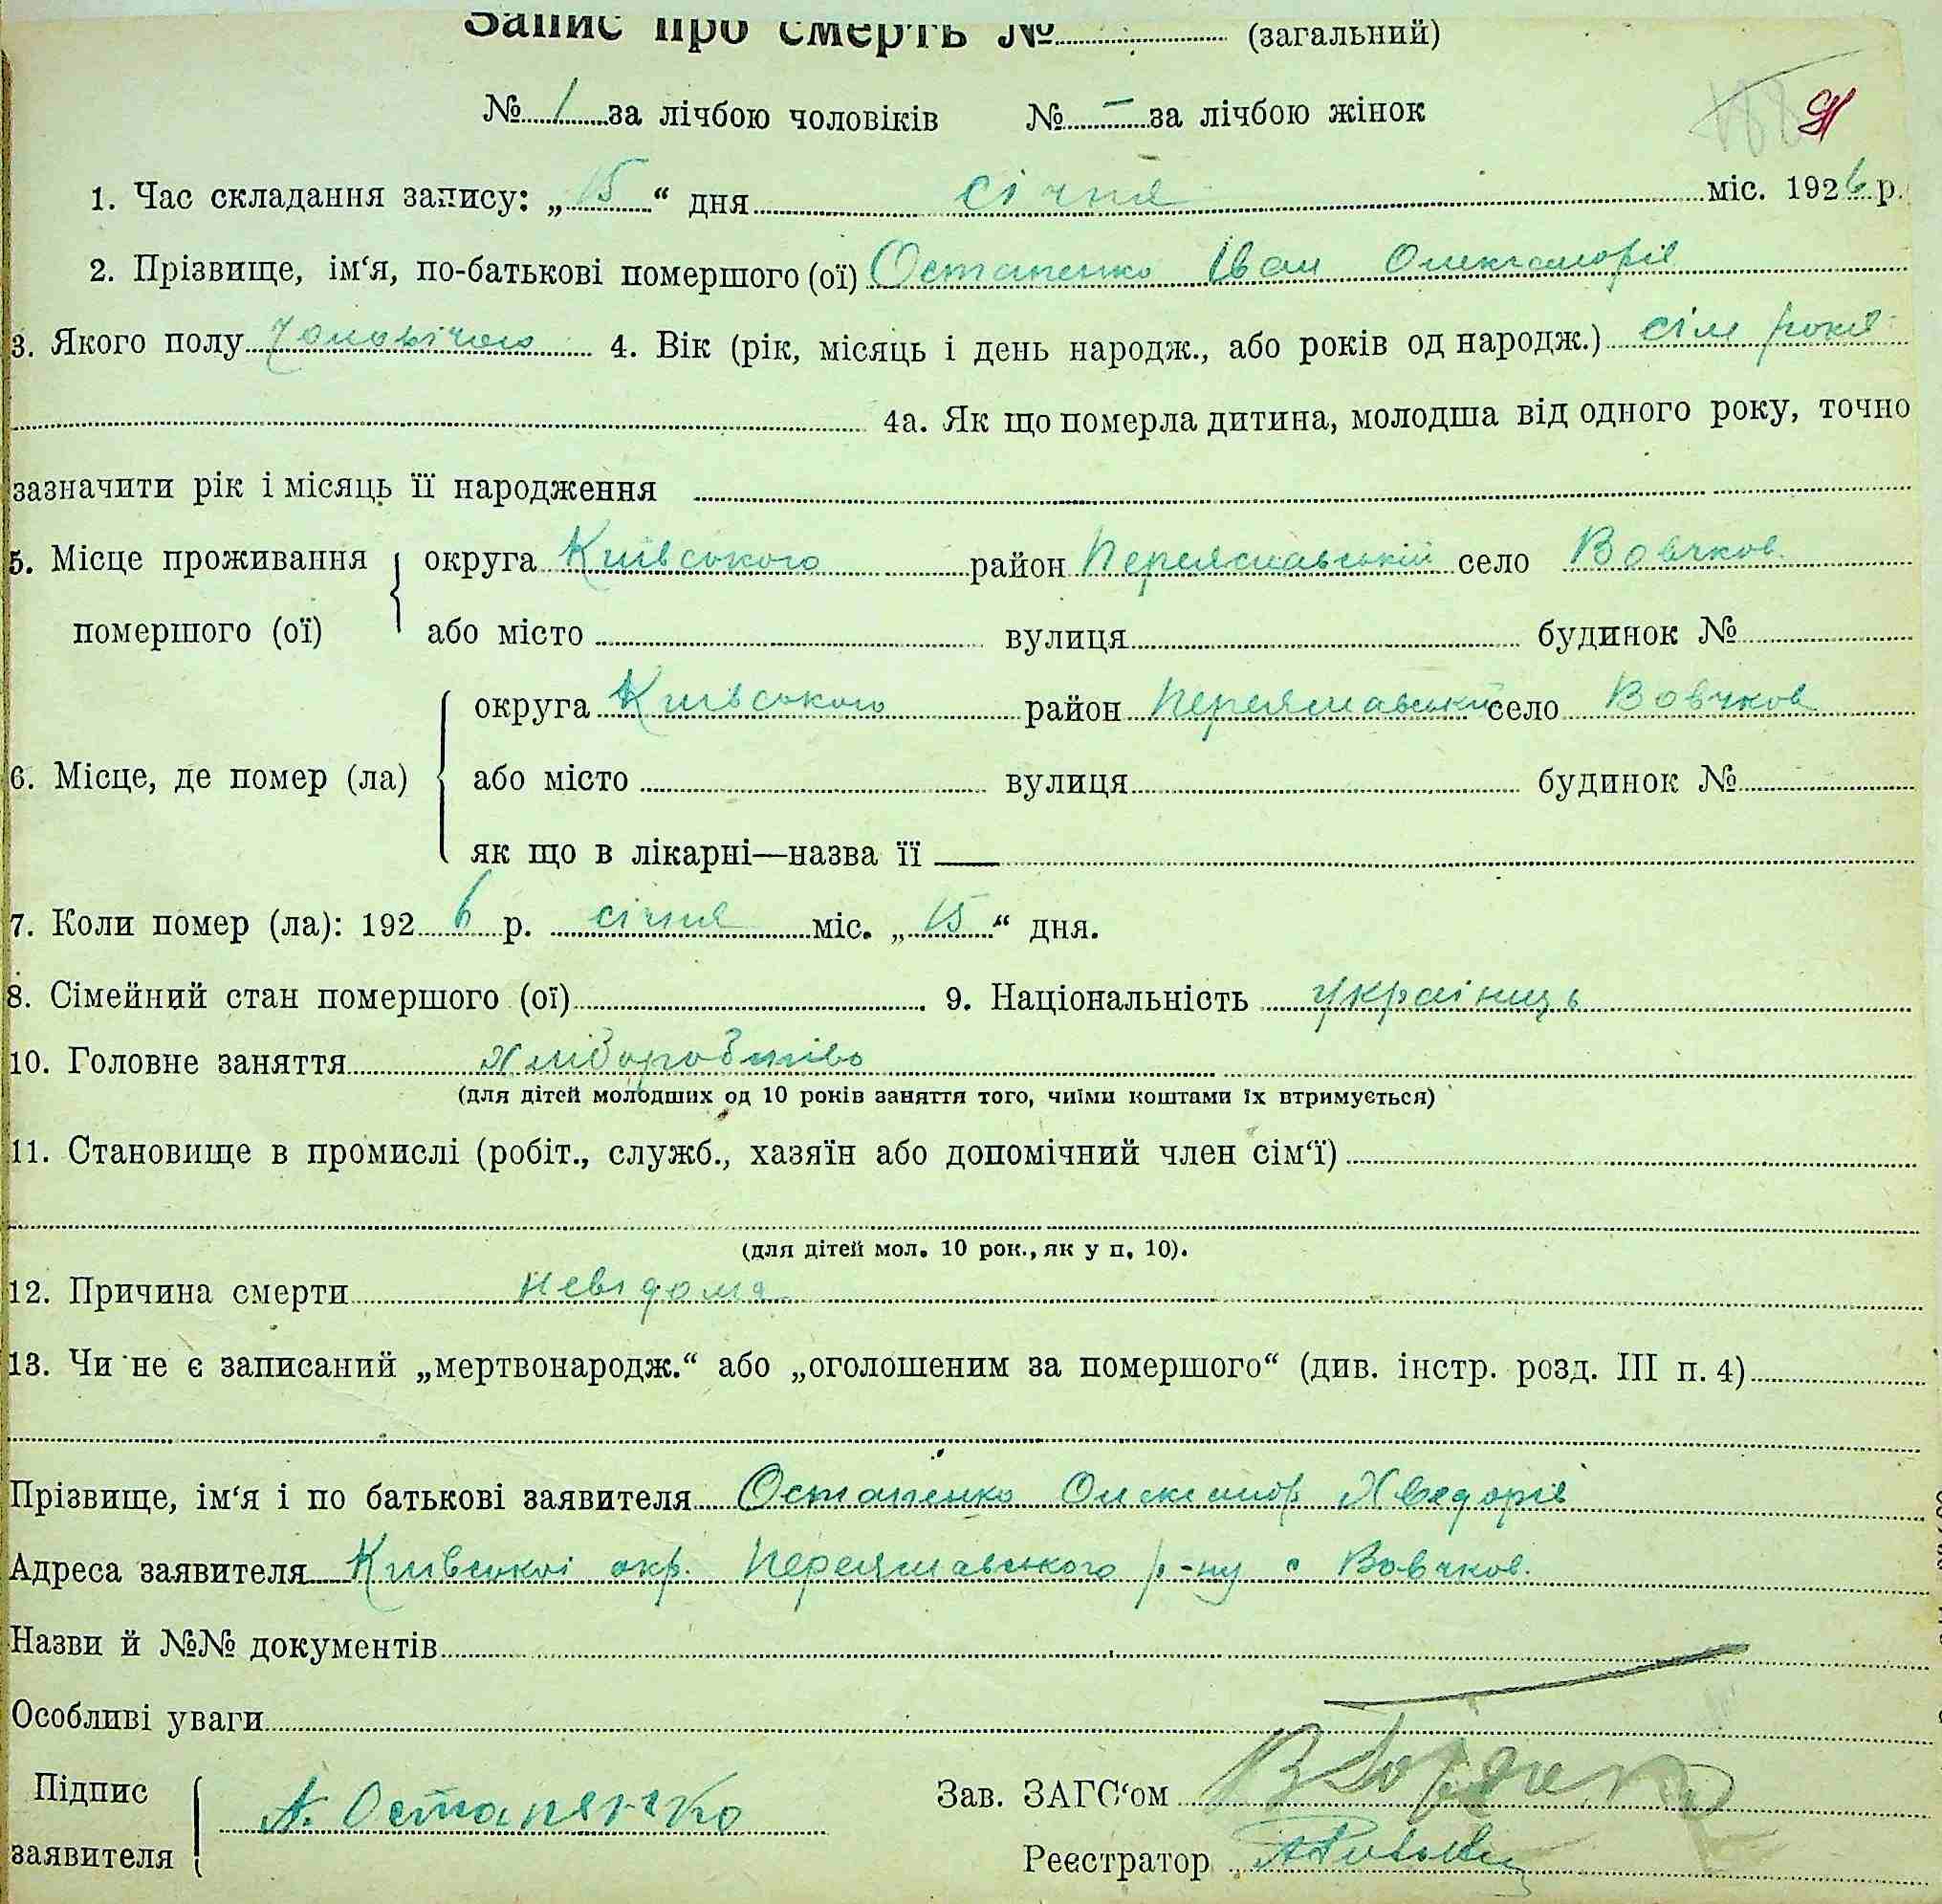 Запис про смерть №........ (загальний)
№ 1 за лічбою чоловіків № — за лічбою жінок
91
1. Час складання запису: „ 15 “ дня січня міс. 1926 р.
2. Прізвище, ім‘я, по-батькові помершого (ої) Остапенко Іван
3. Якого полу Чоловічого 4. Вік (рік, місяць і день народж., або років од народж.) сім років
4а. Як що померла дитина, молодша від одного року, точно
зазначити рік і місяць її народження
5. Місце проживання помершого (ої) округа Київського район Переяславській село Вовчков
або місто вулиця будинок №
6. Місце, де помер (ла) округа Київського район Переяславський село Вовчков
або місто вулиця будинок №
як що в лікарні—назва її
7. Коли помер (ла): 1926 р. січня міс. „ 15 “ дня.
8. Сімейний стан помершого (ої) 9. Національність українць
10. Головне заняття Хліборобство
(для дітей молодших од 10 років заняття того, чиїми коштами їх втримується)
11. Становище в промислі (робіт., служб., хазяїн або допомічний член сім‘ї)
(для дітей мол. 10 рок., як у п. 10).
12. Причина смерти невідома
13. Чи не є записаний „мертвонародж.“ або „оголошеним за помершого“ (див. інстр. розд. III п. 4)
Прізвище, ім‘я і по батькові заявителя Остапенко Хведорів
Адреса заявителя Київської окр. Переяславського р-ну с Вовчков.
Назви й №№ документів
Особливі уваги
Підпис заявителя А. Остапенко Зав. ЗАГС‘ом
Реєстратор